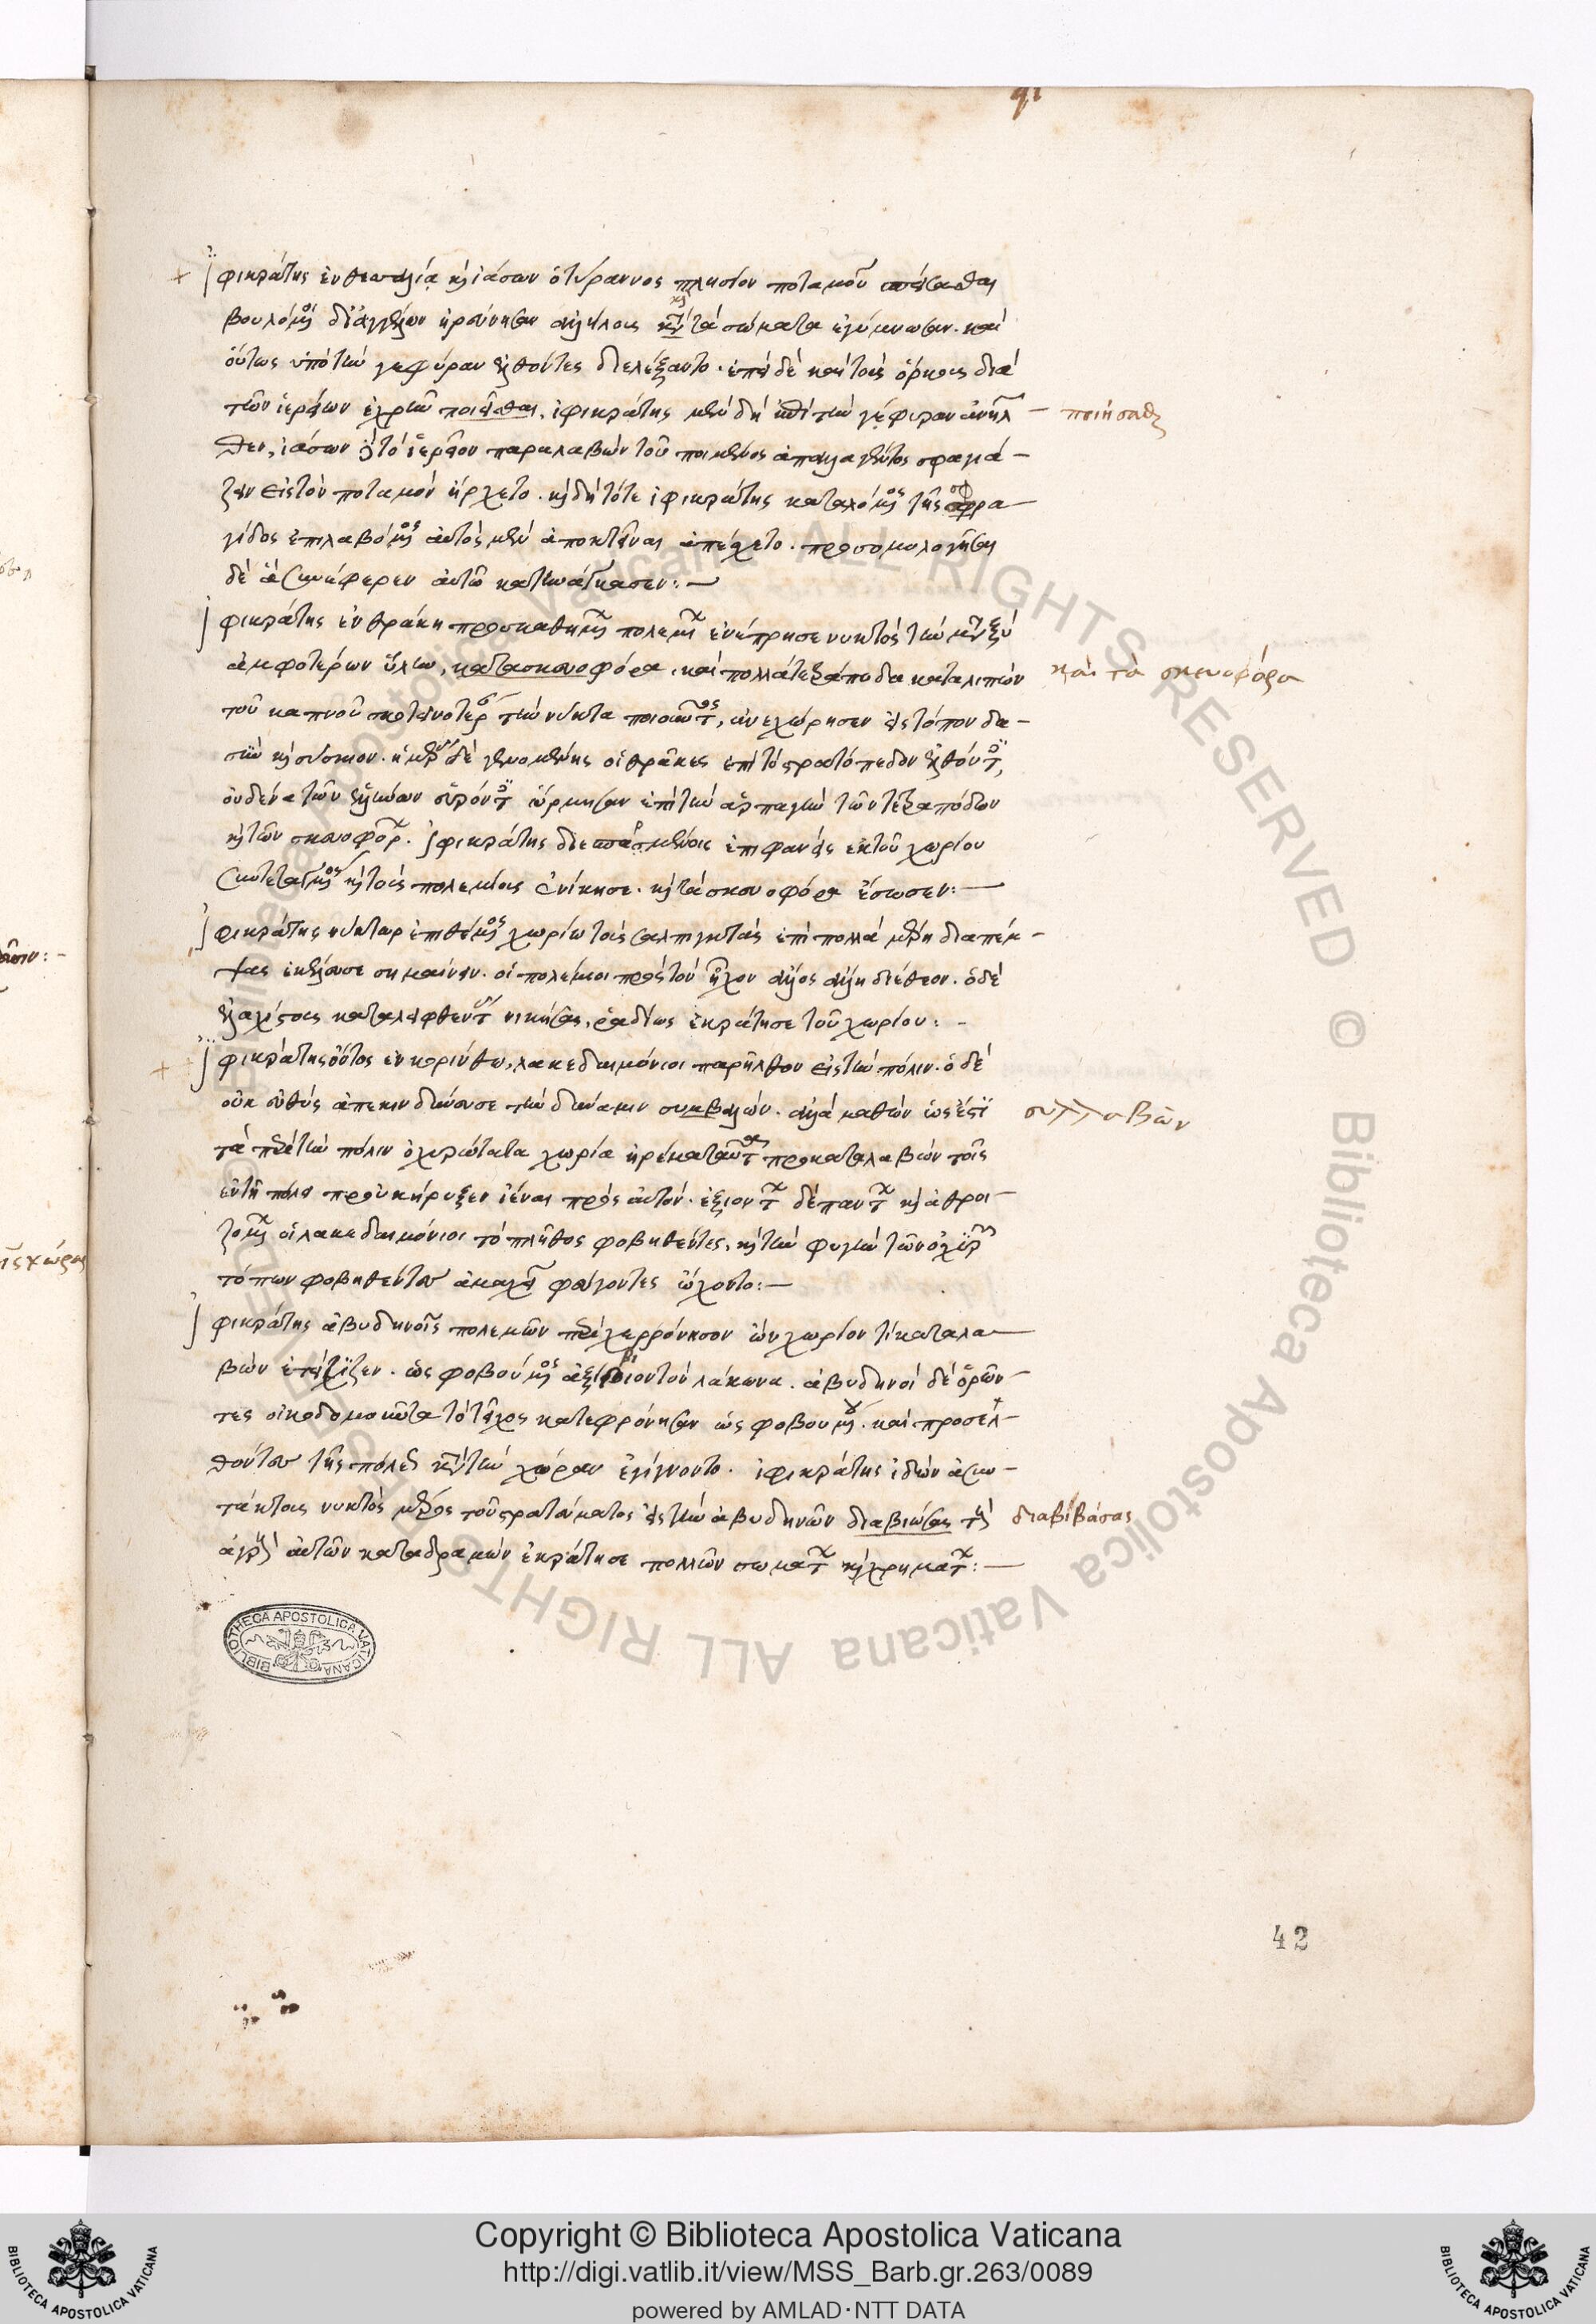 Ἰφικράτης ἐν θεσσαλία καὶ ἰάσων ὁ τύραννος πλησίον ποταμοῦ σπείσασθαι
βουλόμενοι δι' ἀγγέλων ἠρεύνησαν ἀλλήλοις τὰ σώματα ἐγύμνωσαν. καὶ
οὕτως ὑπὸ τὴν γεφύραν ἐλθόντες διελέξαντο. ἐπεὶ δὲ καὶ τοῖς ὅρκοις διὰ
τῶν ἱερείων ἐχρῆν ποιεῖσθαι, ἰφικράτης μὲν δὴ ἐπὶ τὴν γέφυραν ἀνῆλ-
θεν, ἰάσων δὲ τὸ ἱερεῖον παραλαβὼν τοῦ ποιμένος σφαγιά-
ζειν εἰς τὸν ποταμὸν ἤρχετο. καὶ δὴ τότε ἰφικράτης τῆς σφρα-
γίδος ἐπιλαβόμενος αὐτὸς μὲν ἀποκτεῖναι ἀπέσχετο. προσομολογῆσαι
δὲ ἃ συνέφερεν αὐτῶ κατηνάγκασεν:
Ἰφικράτης ἐν θράκη προσκαθημένων πολεμίων ἐνέπρησε νυκτὸς τὴν μεταξὺ
ἀμφοτέρων ὕλην, κατασκευοφόρα. καὶ πολλὰ τετράποδα καταλιπὼν
τοῦ καπνοῦ σκοτεινοτέραν τὴν νύκτα ποιοῦντος, ἀνεχώρησεν εἰς τόπον δα-
σὺν καὶ σύσκιον. ἡμέρας δὲ γενομένης οἱ θρᾶκες ἐπὶ τὸ στρατόπεδον ἐλθόντες,
οὐδένα τῶν ἑλλήνων εὑρόντες ὥρμησαν ἐπὶ τὴν ἁρπαγὴν τῶν τετραπόδων
καὶ τῶν σκευοφόρων. ἰφικράτης διεσπαρμένοις ἐπιφανεὶς ἐκ τοῦ χωρίου
συντεταγμένος καὶ τοὺς πολεμίους ἐνίκησε. καὶ τὰ σκευοφόρα ἔσωσεν:
Ἰφικράτης νύκτωρ ἐπιθέμενος χωρίω τοὺς σαλπιγκτὰς ἐπὶ πολλὰ μέρη διαπέμ-
ψας ἐκέλευσε σημαίνειν. οἱ πολέμιοι πρὸς τὸν ἦχον ἄλλος ἄλλη διέθεον. ὁ δὲ
ἐλαχίστους καταλειφθέντας νικήσας, ῥαδίως ἐκράτησε τοῦ χωρίου:
Ἰφικράτης οὗτος ἐν κορίνθω, λακεδαιμόνιοι παρῆλθον εἰς τὴν πόλιν. ὁ δὲ
οὐκ εὐθὺς ἀπεκινδύνευσε τὴν δύναμιν συμβαλών. ἀλλὰ μαθὼν ὡς ἔστι
τὰ περὶ τὴν πόλιν ὀχυρώτατα χωρία προκαταλαβὼν τοῖς
ἐν τῇ πόλει προὐκήρυξεν ἰέναι πρὸς αὐτόν. ἐξιόντων δὲ πάντων καὶ ἀθροι-
ζομένων οἱ λακεδαιμόνιοι τὸ πλῆθος φοβηθέντες, καὶ τὴν φυγὴν τῶν ὀχυρῶν
τόπων φοβηθέντες ἀμαχεὶ φεύγοντες ὤχοντο:
Ἰφικράτης ἀβυδηνοῖς πολεμῶν περὶ χερρόνησον ὢν χωρίον τι καταλα-
βὼν ἐτείχιζεν. ὡς φοβούμενος ἀξίβιον τὸν λάκωνα. ἀβυδηνοὶ δὲ ὁρῶν-
τες οἰκοδομοῦντα τὸ τεῖχος κατεφρόνησαν ὡς φοβουμένου. καὶ προσελ-
θόντες τῆς πόλεως κατὰ τὴν χώραν ἐγίγνοντο. ἰφικράτης ἰδὼν ἀσυν-
τάκτους νυκτὸς μέρος τοῦ στρατεύματος εἰς τὴν ἀβυδηνῶν διαβιώσας τοὺς
ἀγροὺς αὐτῶν καταδραμὼν ἐκράτησε πολλῶν σωμάτων καὶ χρημάτων:
ποιήσασθαι
καὶ τὰ σκευοφόρα
συλλαβὼν
διαβιβάσας
BIBLIOTHECA APOSTOLICA VATICANA
42
Biblioteca Apostolica Vaticana ALL RIGHTS RESERVED © Biblioteca Apostolica Vaticana ALL RIGHTS RESERVED ©
Copyright © Biblioteca Apostolica Vaticana
http://digi.vatlib.it/view/MSS_Barb.gr.263/0089
powered by AMLAD·NTT DATA
BIBLIOTECA APOSTOLICA VATICANA
BIBLIOTECA APOSTOLICA VATICANA